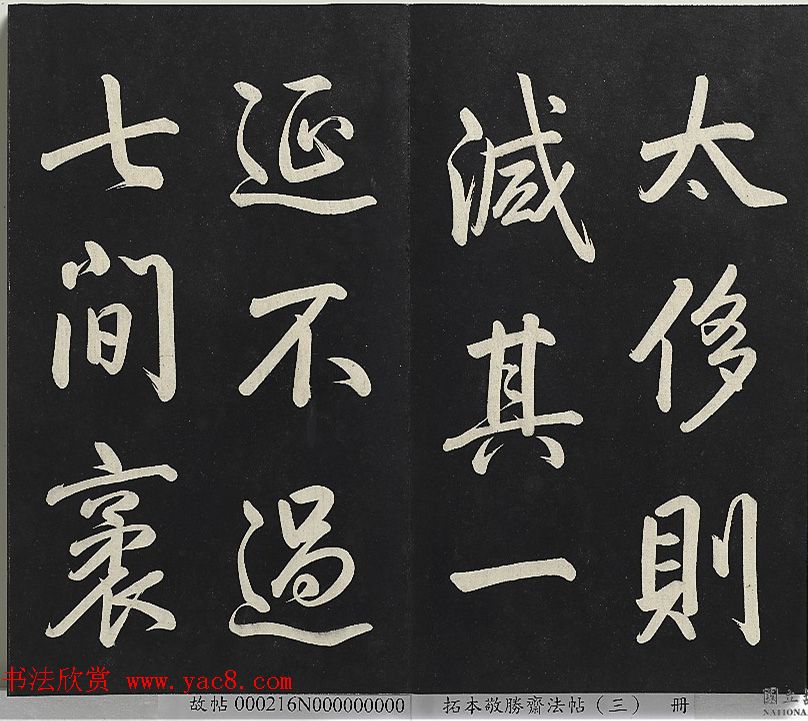 太侈則
減其一
延不過
七間袤
书法欣赏 www.yac8.com
故帖000216N000000000
拓本敬勝齋法帖（三） 冊
國立
NATIONA